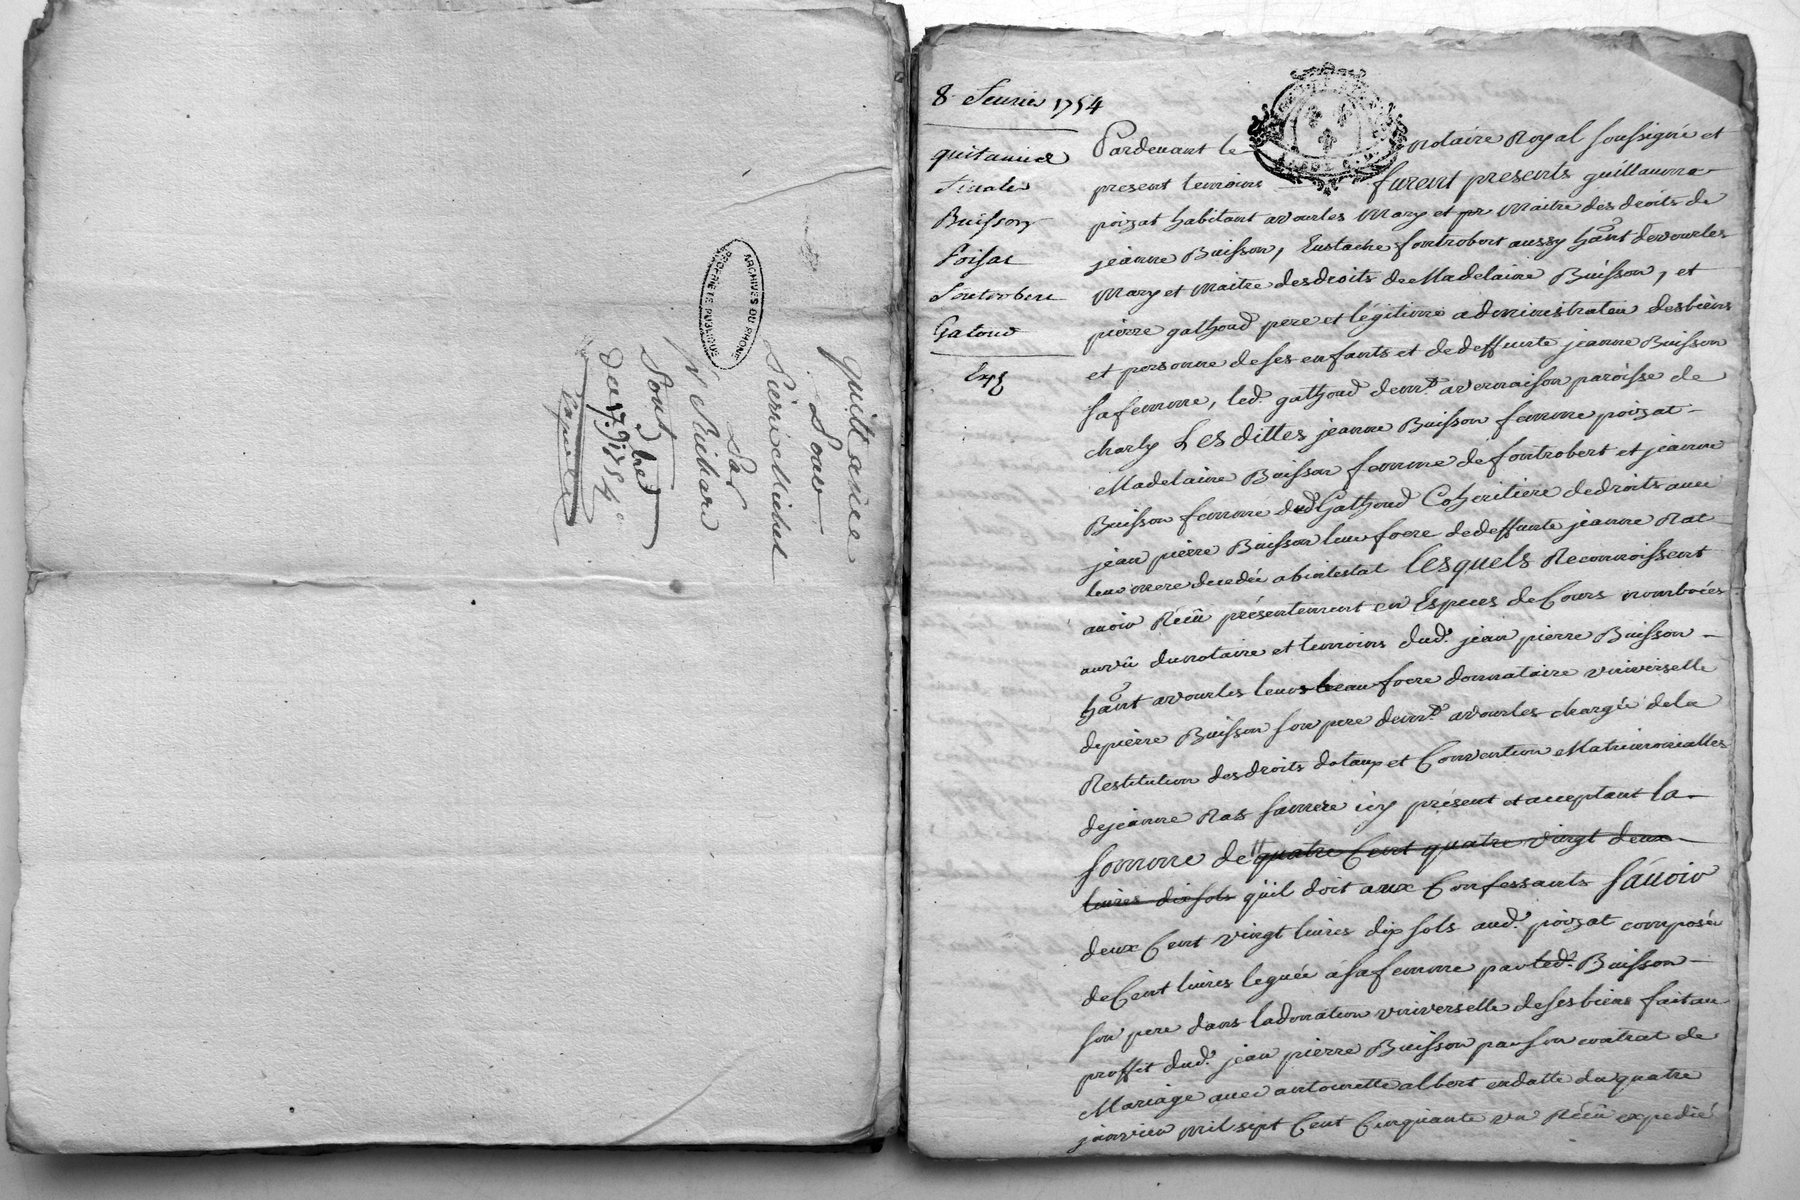 quittance
pour
Pierre Michel
Par
Sont
du 17. 9bre 1754
ARCHIVES DU RHONE
PROPRIETE PUBLIQUE
8 feurier 1754
quitance
finale
Buisson
Poisat
fontrobert
Gatoud
Exp
Pardeuant le notaire Royal soussigné et
present temoins furent presents guillaume
poizat habitant a vourles Mary et pr Maitre des droits de
jeanne Buisson, Eustache fontrobert aussy hãnt de vourles
Mary et Maitre des droits de Madelaine Buisson, et
pierre gathoud pere et légitime administrateur des biens
et personne de ses enfants et de deffunte jeanne Buisson
sa femme, led. gathoud demt. a vernaison paroisse de
charly Les dittes jeanne Buisson femme poizat
Madelaine Buisson femme de fontrobert et jeanne
Buisson femme dud Gathoud Coheritiere de droits auec
jean pierre Buisson leur frere de deffunte jeanne Rat
leur mere decedée abintestat lesquels Reconnoissent
auoir Récû présentement en Especes de Cours nombrées
au vû du notaire et temoins dud. jean pierre Buisson
hãnt a vourles leur beau frere donnataire vniverselle
de pierre Buisson son pere demt. a vourles chargée de la
Restitution des droits dotaux et Convention Matrimonialles
de jeanne Rat sa mere icy présent et acceptant la
somme de quatre Cent quatre vingt deux
liures dix sols qu'il doit aux Confessants sáuoir
deux Cent vingt liures dix sols aud. poizat composée
de Cent liures leguée á sa femme par led. Buisson
son pere dans la donation vniverselle de ses biens fait au
proffit dud. jean pierre Buisson par son contrat de
Mariage auec antoinette albert en datte du quatre
janvier mil sept Cent Cinquante vn Récû expedié